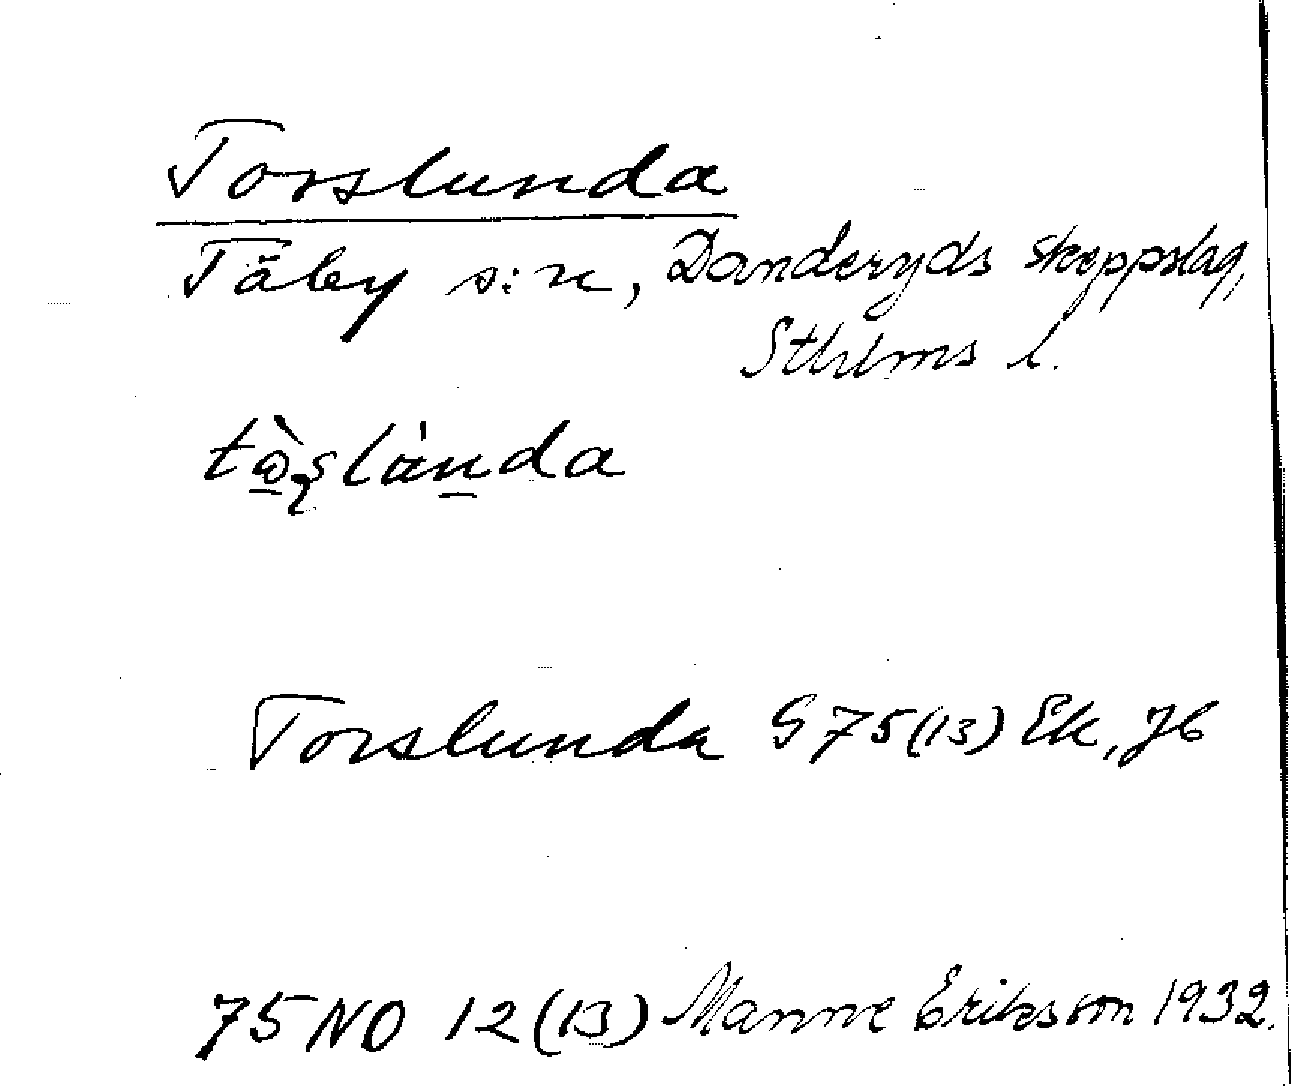 Torslunda
Täby s:n, Danderyds skeppslag,
Sthlms l.
Torslunda G 75(13) Ek, Jb
75 NO 12 (13) Manne Eriksson 1932.